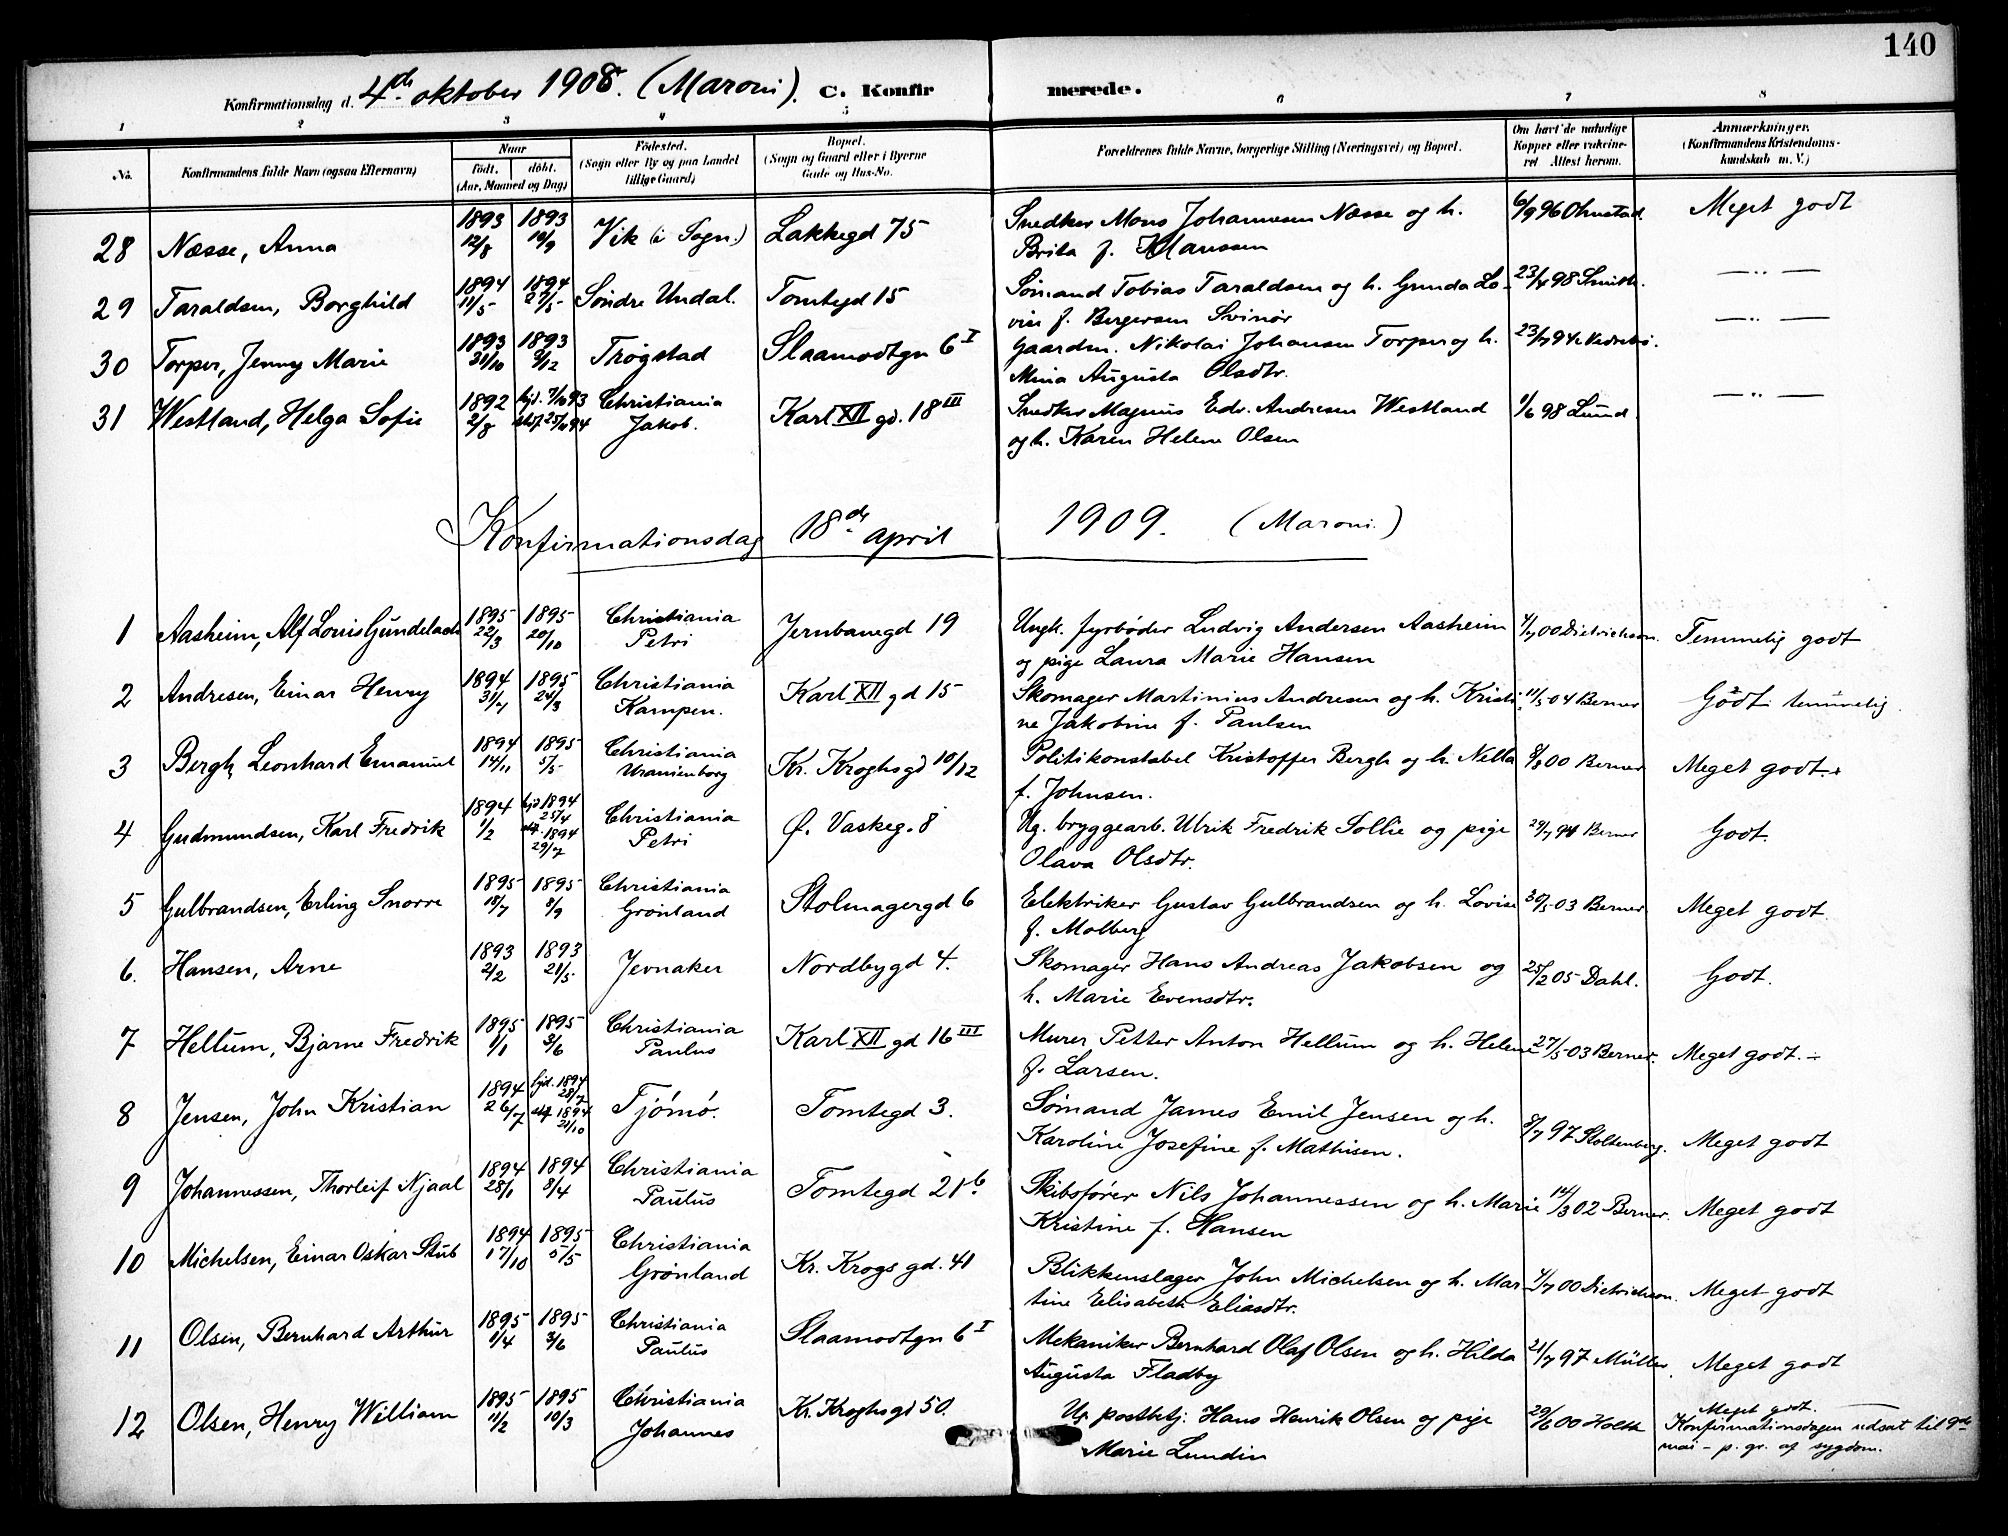 140
Konfirmationsdag d. 4de oktober 1908. (Maroni). C. Konfirmerede.
1 2 3 4 5 6 7 8
No. Konfirmandens fulde Navn (ogsaa Efternavn) Naar født. døbt. (Aar, Maaned og Dag) Fødested. (Sogn eller By og paa Landet tillige Gaard) Bopæl. (Sogn og Gaard eller i Byerne Gade og Hus-No. Forældrenes fulde Navne, borgerlige Stilling (Næringsvei) og Bopæl. Om havt de naturlige Kopper eller vaksineret Attest herom. Anmærkninger. (Konfirmandens Kristendomskundskab m. V.)
28 Næsse, Anna 1893 12/8 1893 10/9 Vik (i Sogn.) Lakkegd 75 Snedker Mons Johannesen Næsse og h. 6/9 96 Ohnstad. Meget godt
Brita f. Klaussen
29 Taraldsen, Borghild 1894 11/5 1894 27/5 Søndre Undal. Tomtegd 15 Sømand Tobias Taraldsen og h. Gunda Lo- 23/4 98 Smith. — „ —
vise f. Bergersen Svinør
30 Torper, Jenny Marie 1893 31/10 1893 3/12 Trøgstad Slaamodtgn 6 I Gaardm. Nikolai Johansen Torper og h. 23/7 94 — „ —
Mina Augusta Olsdtr.
31 Westland, Helga Sofie 1892 2/8 hjd. 7/10 93 stf. 25/4 94 Christiania Jakob. Karl XII gd. 18 III Snedker Magnus Edv. Andresen Westland 1/6 98 Lund. — „ —
og h. Karen Helene Olsen
Konfirmationsdag 18de april 1909. (Maroni.)
1 Aasheim, Alf Louis Gundelach 1895 22/3 1895 20/10 Christiania Petri Jernbanegd 19 Ungk. fyrbøder Ludvig Andersen Aasheim 4/7 00 Dietrichson. Temmelig godt
og pige Laura Marie Hansen
2 Andresen, Einar Henry 1894 31/7 1895 24/3 Christiania Kampen. Karl XII gd 15 Skomager Martinius Andresen og h. Kristi- 11/5 04 Berner Godt temmelig
ne Jakobine f. Paulsen
3 Bergh, Leonhard Emanuel 1894 14/11 1895 5/5 Christiania Uranienborg Kr. Kroghsgd 10/12 Politikonstabel Kristoffer Bergh og h. Nella 8/8 00 Berner Meget godt
f. Johnsen.
4 Gudmundsen, Karl Fredrik 1894 1/2 hjd 1894 25/4 stf. 1894 29/7 Christiania Petri Ø. Vaskeg. 8 Ug. bryggearb. Ulrik Fredrik Sollie og pige 29/7 94 Berner Godt.
Olava Olsdtr.
5 Gulbrandsen, Erling Snorre 1895 15/7 1895 8/9 Christiania Grønland Stolmagergd 6 Elektriker Gustav Gulbrandsen og h. Lovise 30/5 03 Berner Meget godt
f. Molberg
6. Hansen, Arne 1893 2/2 1893 21/5 Jevnaker Nordbygd 4. Skomager Hans Andreas Jakobsen og 25/2 05 Dahl. Godt.
h. Marie Evensdtr.
7 Hellum, Bjarne Fredrik 1895 1/1 1895 3/6 Christiania Paulus Karl XII gd 16 III Murer Petter Anton Hellum og h. Helene 27/5 03 Berner. Meget godt. ÷
f. Larsen.
8 Jensen, John Kristian 1894 26/7 hjd. 1894 28/7 stf 1894 21/10 Tjømø. Tomtegd 3. Sømand James Emil Jensen og h. 8/7 97 Stoltenberg. Meget godt
Karoline Josefine f. Mathisen.
9 Johannessen, Thorleif Njaal 1894 28/1 1894 8/4 Christiania Paulus Tomtegd 21 b. Skibsfører Nils Johannessen og h. Marie 14/3 02 Berner. Meget godt
Kristine f. Hansen
10 Michelsen, Einar Oskar Stub 1894 17/10 1895 5/5 Christiania Grønland Kr. Krogs gd. 41 Blikkenslager John Michelsen og h. Mar- 4/7 00 Dietrichson. Meget godt
tine Elisabeth Eliasdtr.
11 Olsen, Bernhard Arthur 1895 1/4 1895 3/6 Christiania Paulus Slaamodtgn 6 I Mekaniker Bernhard Olaf Olsen og h. Hilda 21/7 97 Müller. Meget godt
Augusta Fladby
12 Olsen, Henry William 1895 11/2 1895 10/3 Christiania Johannes Kr. Kroghsgd 50. Ug. postbetj. Hans Henrik Olsen og pige 29/6 00 Holth Meget godt. —
Marie Lundin Konfirmationsdagen udsat til 9de
mai – p. gr. af sygdom.